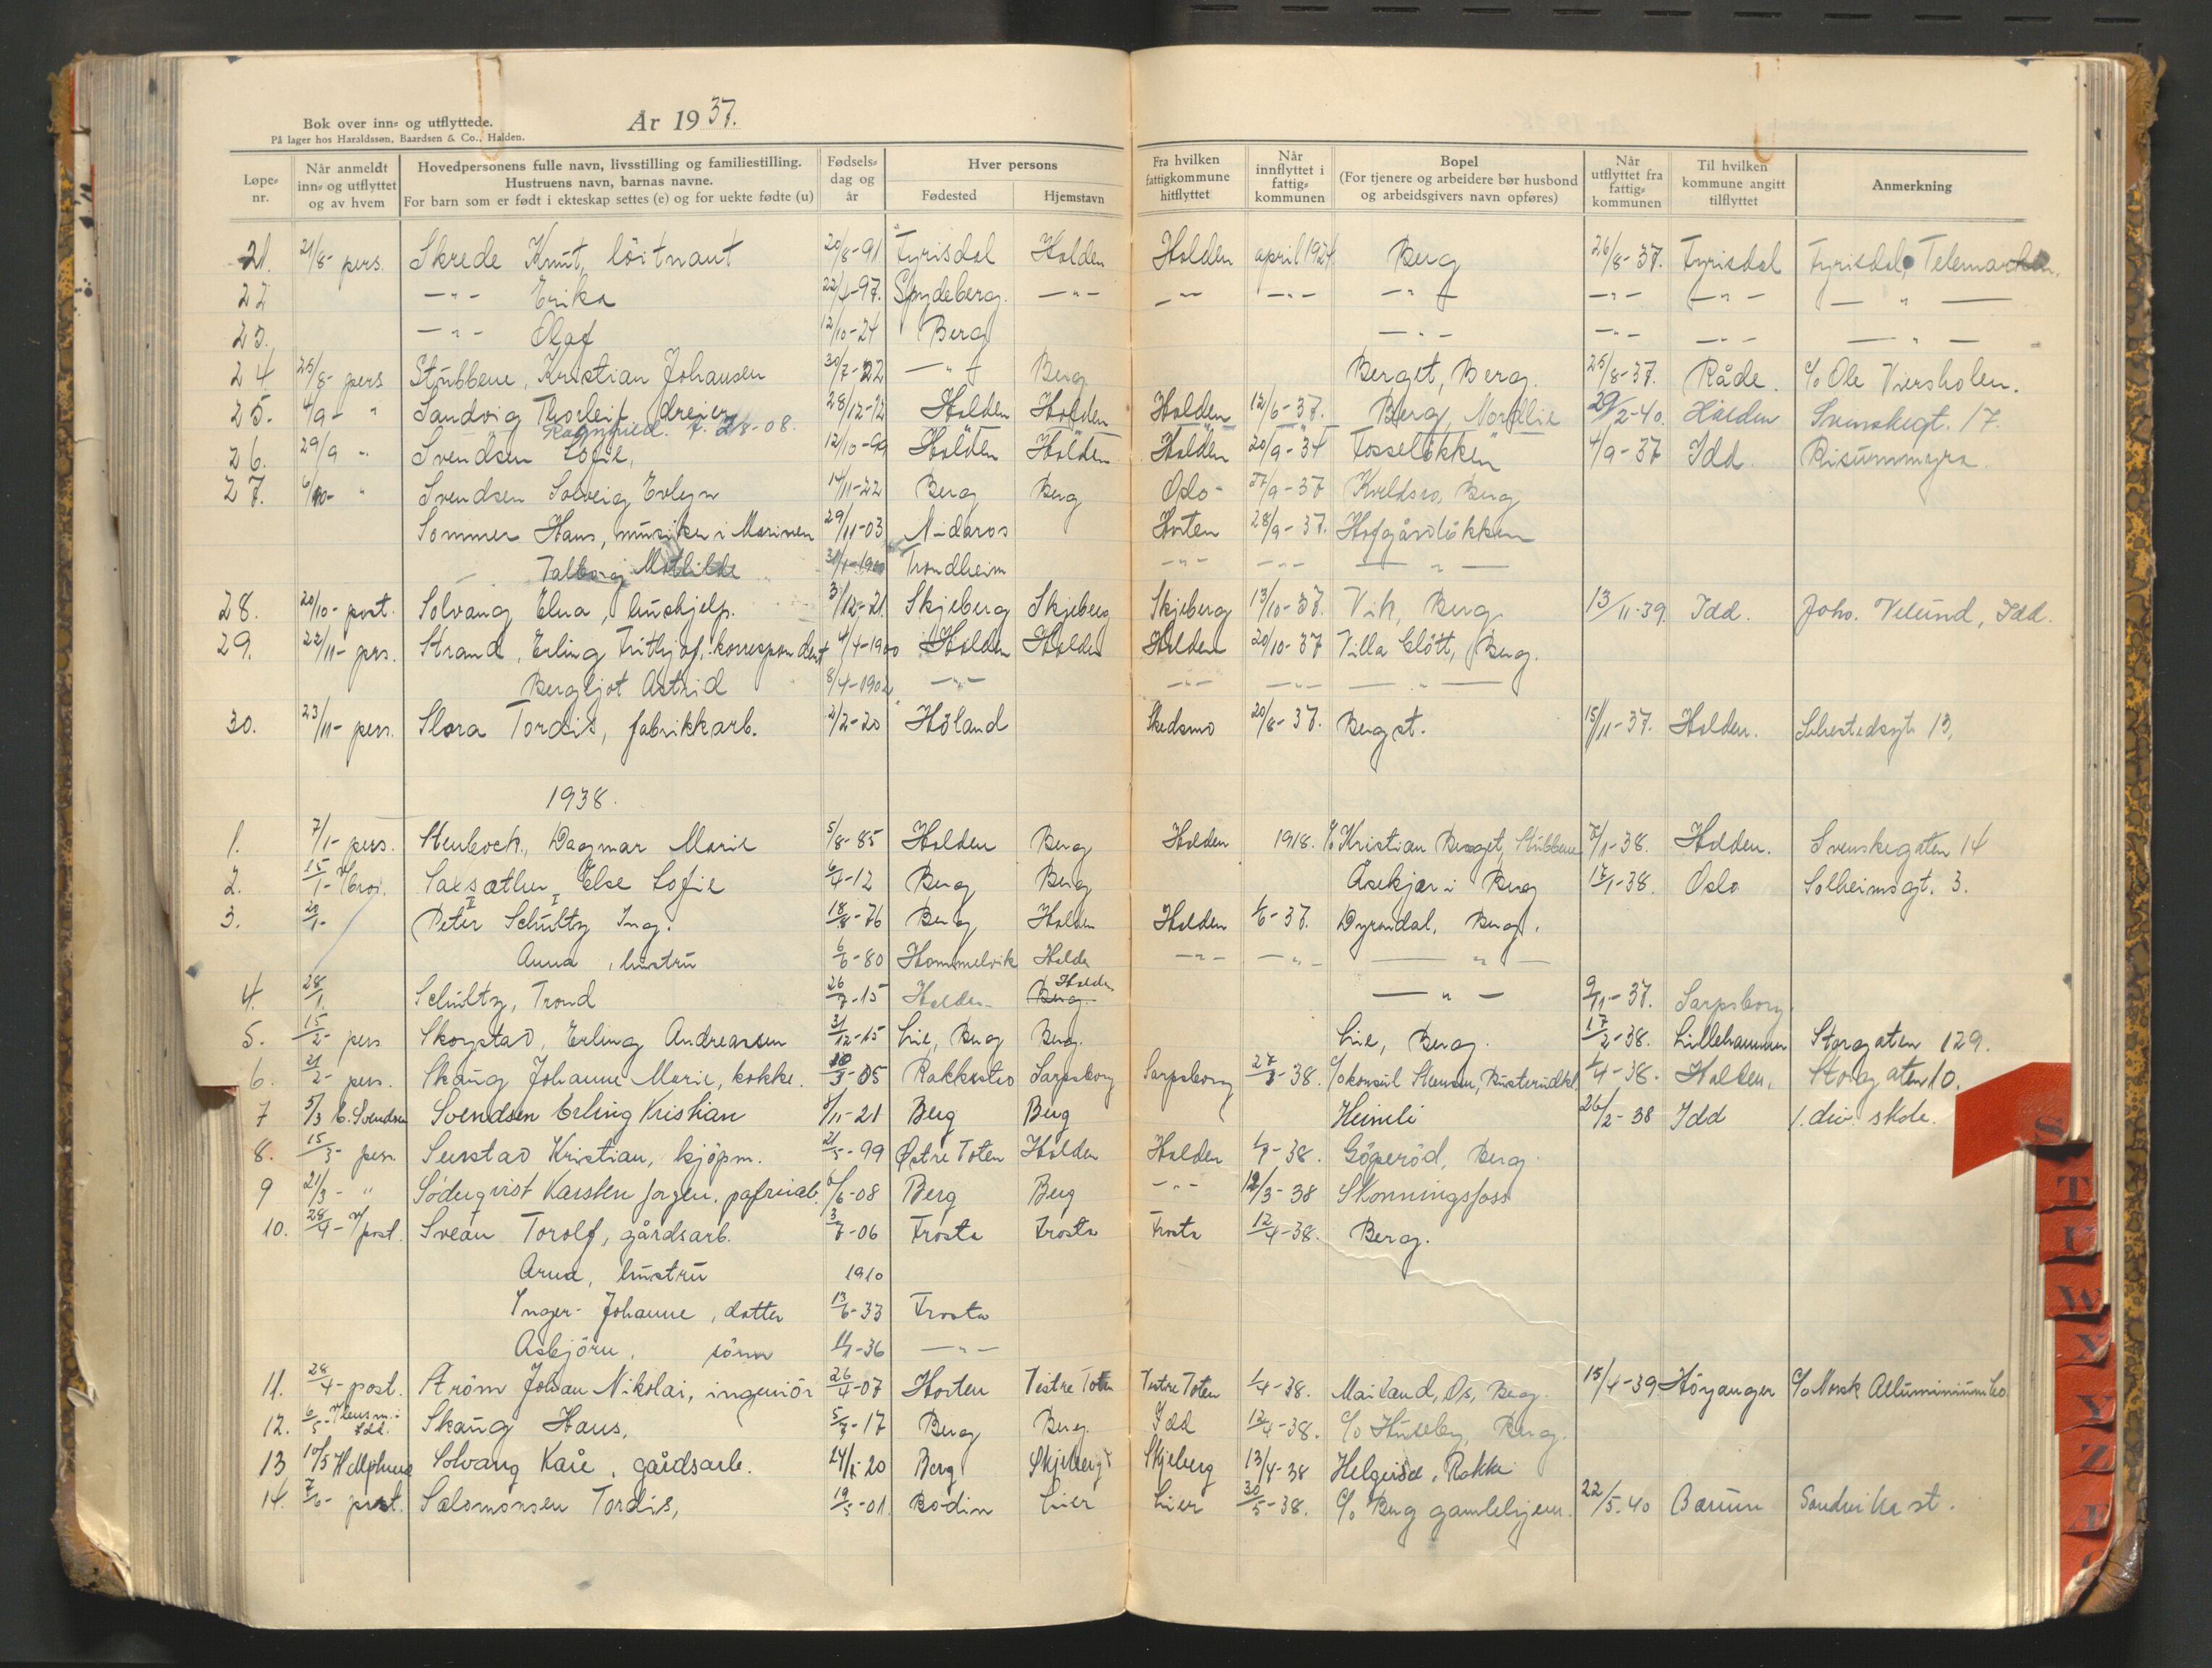 Bok over inn- og utflyttede.
På lager hos Haraldssøn, Baardsen & Co., Halden.
År 1937.
Løpe-nr. Når anmeldt inn- og utflyttet og av hvem Hovedpersonens fulle navn, livsstilling og familiestilling. Hustruens navn, barnas navne. For barn som er født i ekteskap settes (e) og for uekte fødte (u) Fødsels-dag og år Hver persons Fødested Hjemstavn Fra hvilken fattigkommune hitflyttet Når innflyttet i fattig-kommunen Bopel (For tjenere og arbeidere bør husbond og arbeidsgivers navn opføres) Når utflyttet fra fattig-kommunen Til hvilken kommune angitt tilflyttet Anmerkning
21. 21/8- pers. Skrede Knut, löitnant 20/8-91 Fyrisdal Halden Halden april 1924 Berg 26/8-37. Fyrisdal Fyrisdal, Telemarken.
22 -"- Erika 22/4-97. Spydeberg. -"- -"- -"- -"- -"- -"- -"-
23. -"- Olaf 12/10-24 Berg -"- -"- -"- -"-
24. 25/8- pers Stubbene, Kristian Johansen 30/7-22 -"- Berg Berget, Berg. 25/8-37. Råde. c/o Ole Viersholen.
25. 4/9- " Sandvig Thorleif, dreier 28/12-12 Halden Halden Halden 12/6-37. Berg, Nordlie 29/2-40. Halden Svenskegt. 17.
Ragnfried. f. 2/8-08.
26. 29/9 " Svendsen Sofie, 12/10-99 Halden Halden Halden 20/9-34 Fosseløkken 4/9-37 Idd Risummyra
27. 6/10- " Svendsen Solveig Evelyn 14/11-22 Berg Berg Oslo- 27/9-37 Kveldsro, Berg
Sommer Hans, musiker i Marinen 29/11-03 Nidaros Horten 28/9-37. Hofgårdløkken
Talborg Mathilde 31/1-1900 Trondheim -"- -"- -"-
28. 20/10- post. Solvang Elna, hushjelp. 3/12-21. Skjeberg Skjeberg Skjeberg 13/10-37. Vik, Berg 13/11-39. Idd. Johs. Velund, Idd.
29. 22/11- pers. Strand, Erling Fritjof, korrespondent 4/4-1900 Halden Halden Halden 20/10-37 Villa Slött, Berg.
Bergljot Astrid 8/4-1902 -"- -"- -"- -"-
30. 23/11- pers. Slora Tordis, fabrikkarb. 2/2-20 Höland Skedsmo 20/8-37. Bergst. 15/11-37. Halden. Sehestedsgt. 13.
1938.
1. 7/1- pers. Stenbock, Dagmar Marie 5/8-85 Halden Berg Halden 1918. c/o Kristian Berget, Stubbene 7/1-38. Halden. Svenskegaten 14
2. 15/1- Saxsæther, Else Sofie 6/4-12 Berg Berg Åsekjær i Berg 12/1-38. Oslo Solheimsgt. 3.
3. 20/1- Peter Schultz Ing. 18/8-76 Berg Halden Halden 1/6-37. Dyrendal, Berg.
Anna, hustru 6/6-80 Hommelvik Halde -"- -"- -"-
4. 28/1. Schultz, Trond 26/7-15 Halden Berg Halden -"- 9/11-37. Sarpsborg.
5. 15/2- pers Skogstad, Erling Andreassen 31/12-15 Lie, Berg Berg. Lie, Berg. 17/2-38. Lillehammer Storgaten 129.
6. 21/2- pers. Skaug Johanne Marie, kokke. 20/3-05 Rakkestad Sarpsborg Sarpsborg 27/8-38. c/o konsul Stensen, 1/4-38. Halden. Storgaten 10.
7 5/3 E. Svendsen Svendsen Erling Kristian 8/11-21 Berg Berg Heimli 26/2-38 Idd 1. div. skole.
8. 15/3- pers. Senstad Kristian, kjöpm. 21/5-99 Østre Toten Halden Halden 1/3-38. Göperöd, Berg
9 21/3- " Söderqvist Karsten Jørgen. 6/6-08 Berg Berg -"- 12/3-38 Skonningsfoss
10. 28/4- v/post. Svean Torolf, gårdsarb. 3/7-06 Frosta Frosta Frosta 12/4-38. Berg.
Arna, hustru 1910
Inger-Johanne, datter 13/6-33 Frosta
Asbjörn, sönn 11/1-36 -"-
11. 28/4- post. Ström Johan Nikolai, ingeniör 26/4-07 Horten Vestre Toten Vestre Toten 1/4-38. Mailand, Os, Berg. 15/4-39 Höyanger c/o Norsk Alluminium Co.
12. 6/5- lensm. i Idd. Skaug Hans, 5/7-17 Berg Berg. Idd 12/4-38. c/o Huseby, Berg.
13 10/5 Solvang Kåre, gårdsarb. 24/1-20 Berg Skjeberg Skjeberg 13/4-38 Helgerød, Rokke
14. 7/6- post. Salomonsen Tordis, 19/5-01 Bodin Lier Lier 30/5-38. c/o Berg gamlehjem. 22/5.40 Bærum Sandvika st.
S
T
U
W
X
Y
Z